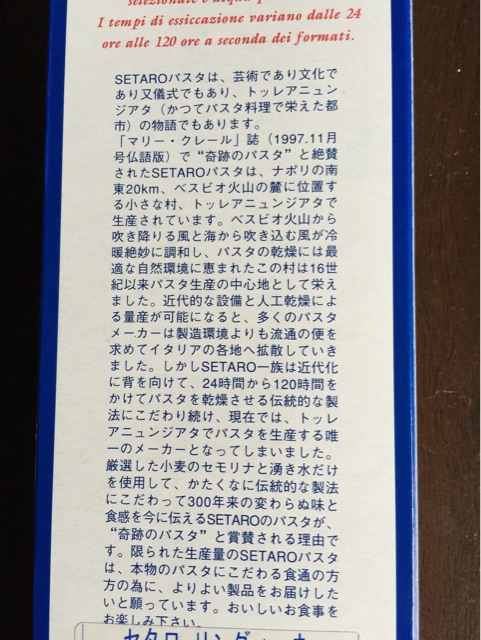 selezionate e acqua p
I tempi di essiccazione variano dalle 24
ore alle 120 ore a seconda dei formati.
SETAROパスタは、芸術であり文化で
あり又儀式でもあり、トッレアニュン
ジアタ（かつてパスタ料理で栄えた都
市）の物語でもあります。
「マリー・クレール」誌（1997.11月
号仏語版）で“奇跡のパスタ”と絶賛
されたSETAROパスタは、ナポリの南
東20km、ベスビオ火山の麓に位置す
る小さな村、トッレアニュンジアタで
生産されています。ベスビオ火山から
吹き降りる風と海から吹き込む風が冷
暖絶妙に調和し、パスタの乾燥には最
適な自然環境に恵まれたこの村は16世
紀以来パスタ生産の中心地として栄え
ました。近代的な設備と人工乾燥によ
る量産が可能になると、多くのパスタ
メーカーは製造環境よりも流通の便を
求めてイタリアの各地へ拡散していき
ました。しかしSETARO一族は近代化
に背を向けて、24時間から120時間を
かけてパスタを乾燥させる伝統的な製
法にこだわり続け、現在では、トッレ
アニュンジアタでパスタを生産する唯
一のメーカーとなってしまいました。
厳選した小麦のセモリナと湧き水だけ
を使用して、かたくなに伝統的な製法
にこだわって300年来の変わらぬ味と
食感を今に伝えるSETAROのパスタが、
“奇跡のパスタ”と賞賛される理由で
す。限られた生産量のSETAROパスタ
は、本物のパスタにこだわる食通の方
方の為に、よりよい製品をお届けした
いと願っています。おいしいお食事を
お楽しみ下さい。
セタロ リング